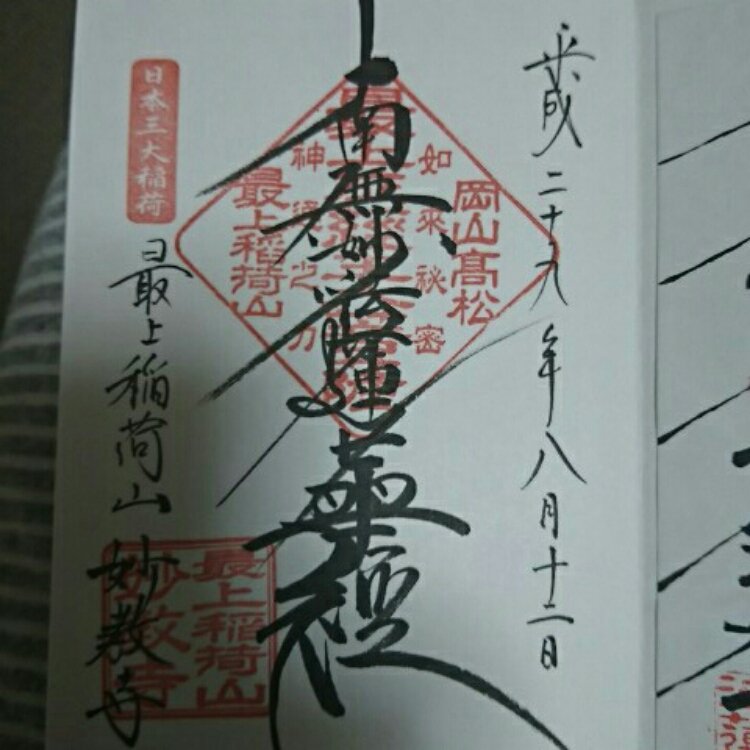 平成二十九年八月十二日
岡山高松
如来秘密
南無妙法蓮華経
神通之力
最上稲荷山
日本三大稲荷
最上稲荷山 妙教寺
最上稲荷山
妙教寺